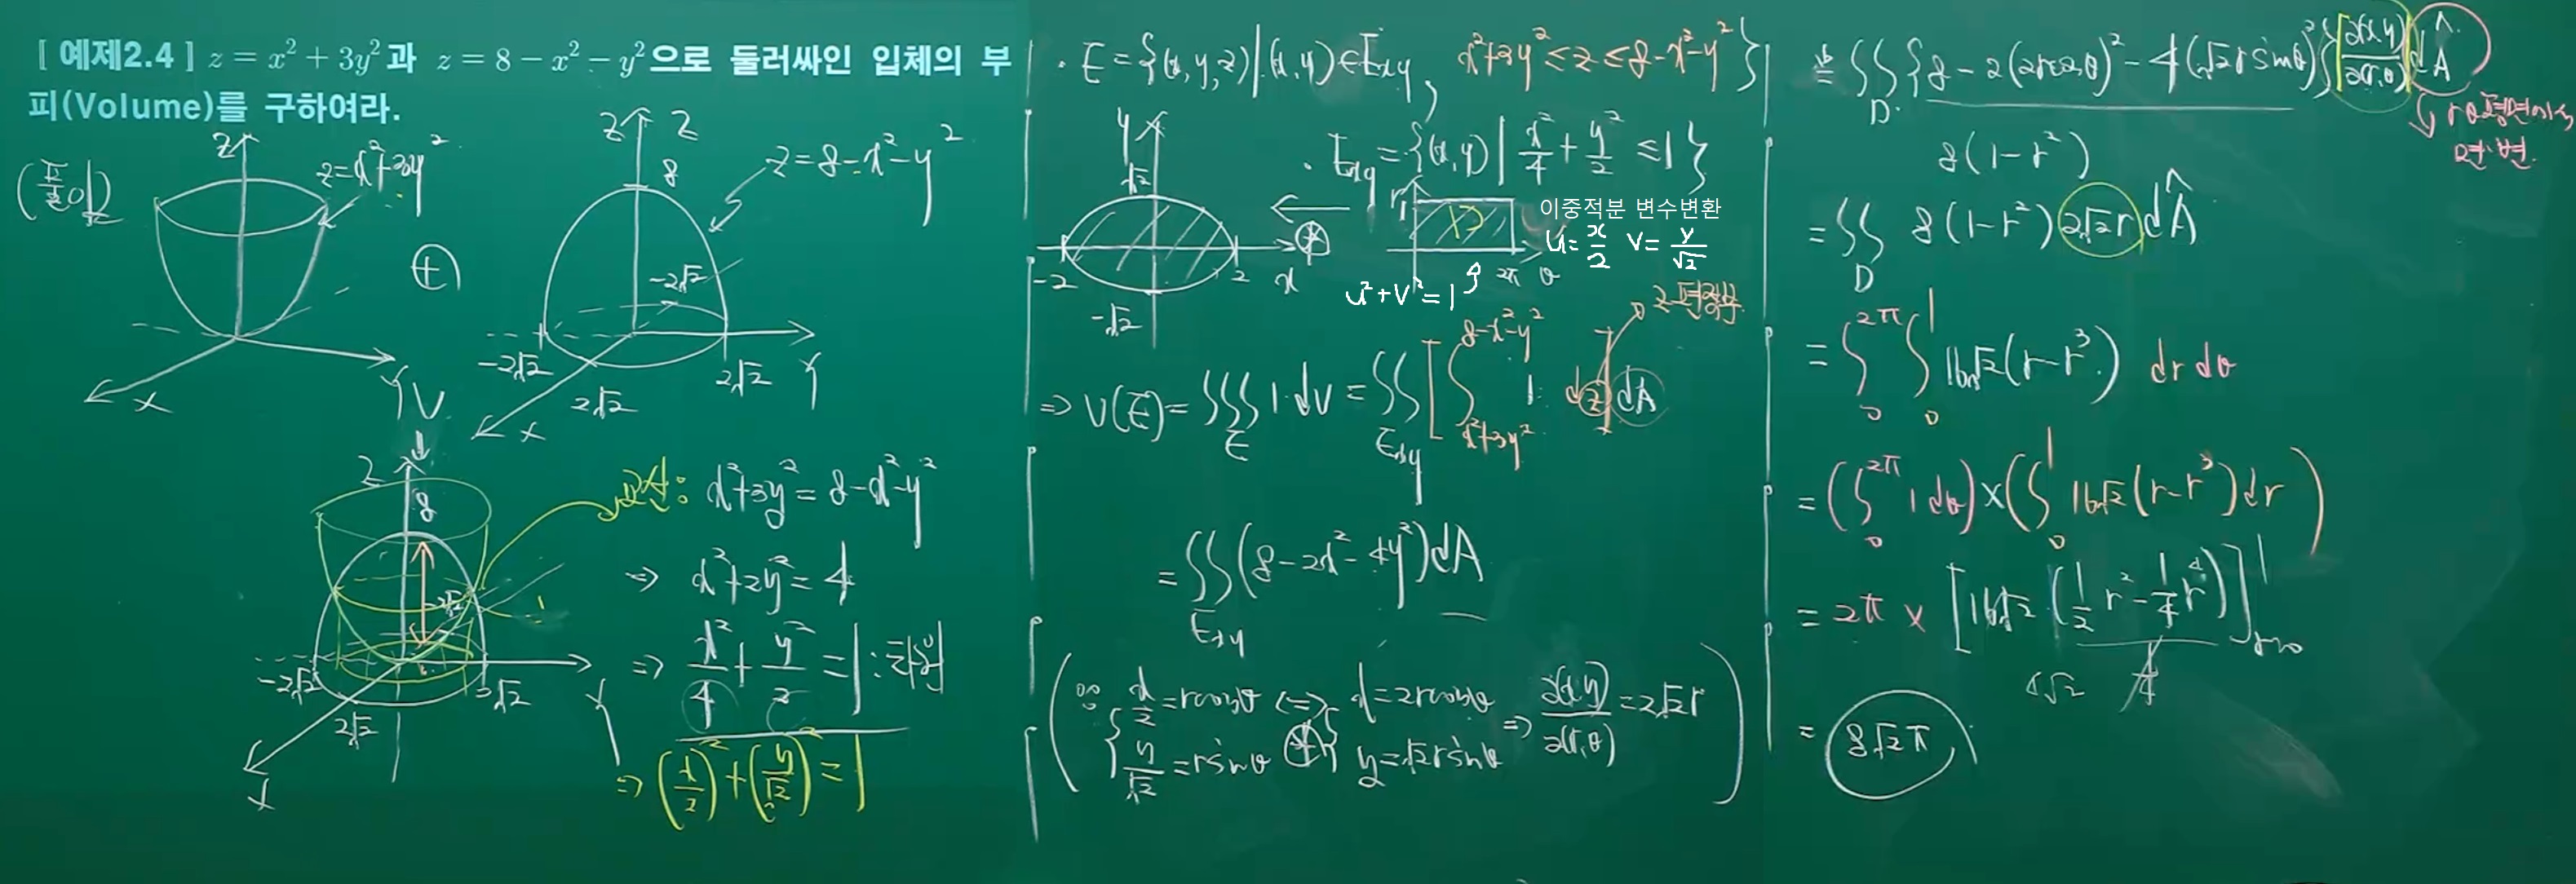 [ 예제2.4 ] z = x² + 3y²과 z = 8 − x² − y²으로 둘러싸인 입체의 부
피(Volume)를 구하여라.
(풀이)
z
z=x²+3y²
x
y
⊕
z
8
z=8-x²-y²
-2√2
-2√2
2√2
2√2
x
y
V
z
8
-2√2
-2√2
2√2
2√2
x
y
교선: x²+3y²=8-x²-y²
⇒ x²+2y²=4
⇒ x²/4 + y²/2 = 1 : 타원
⇒ (x/2)² + (y/√2)² = 1
· E={(x,y,z)|(x,y)∈Exy, x²+3y²≤z≤8-x²-y²}
y
√2
-2
2
x
-√2
· Exy={(x,y)| x²/4 + y²/2 ≤1}
r
1
D
2π
θ
이중적분 변수변환
u= x/2 v= y/√2
u²+v²=1
⇒ V(E)=∭_E 1·dV=∬_Exy [∫_{x²+3y²}^{8-x²-y²} 1 dz] dA
=∬_Exy (8-2x²-4y²)dA
(∵ { x/2=rcosθ ⇔ { x=2rcosθ ⇒ ∂(x,y)/∂(r,θ)=2√2r
y/√2=rsinθ y=√2rsinθ )
=∬_D {8-2(2rcosθ)²-4(√2rsinθ)²} |∂(x,y)/∂(r,θ)| dÂ
8(1-r²)
=∬_D 8(1-r²) 2√2r dÂ
=∫_0^{2π} ∫_0^1 16√2(r-r³) dr dθ
=(∫_0^{2π} 1 dθ)×(∫_0^1 16√2(r-r³)dr)
=2π × [16√2(1/2 r² - 1/4 r⁴)]_{r=0}^1
4√2
= 8√2π